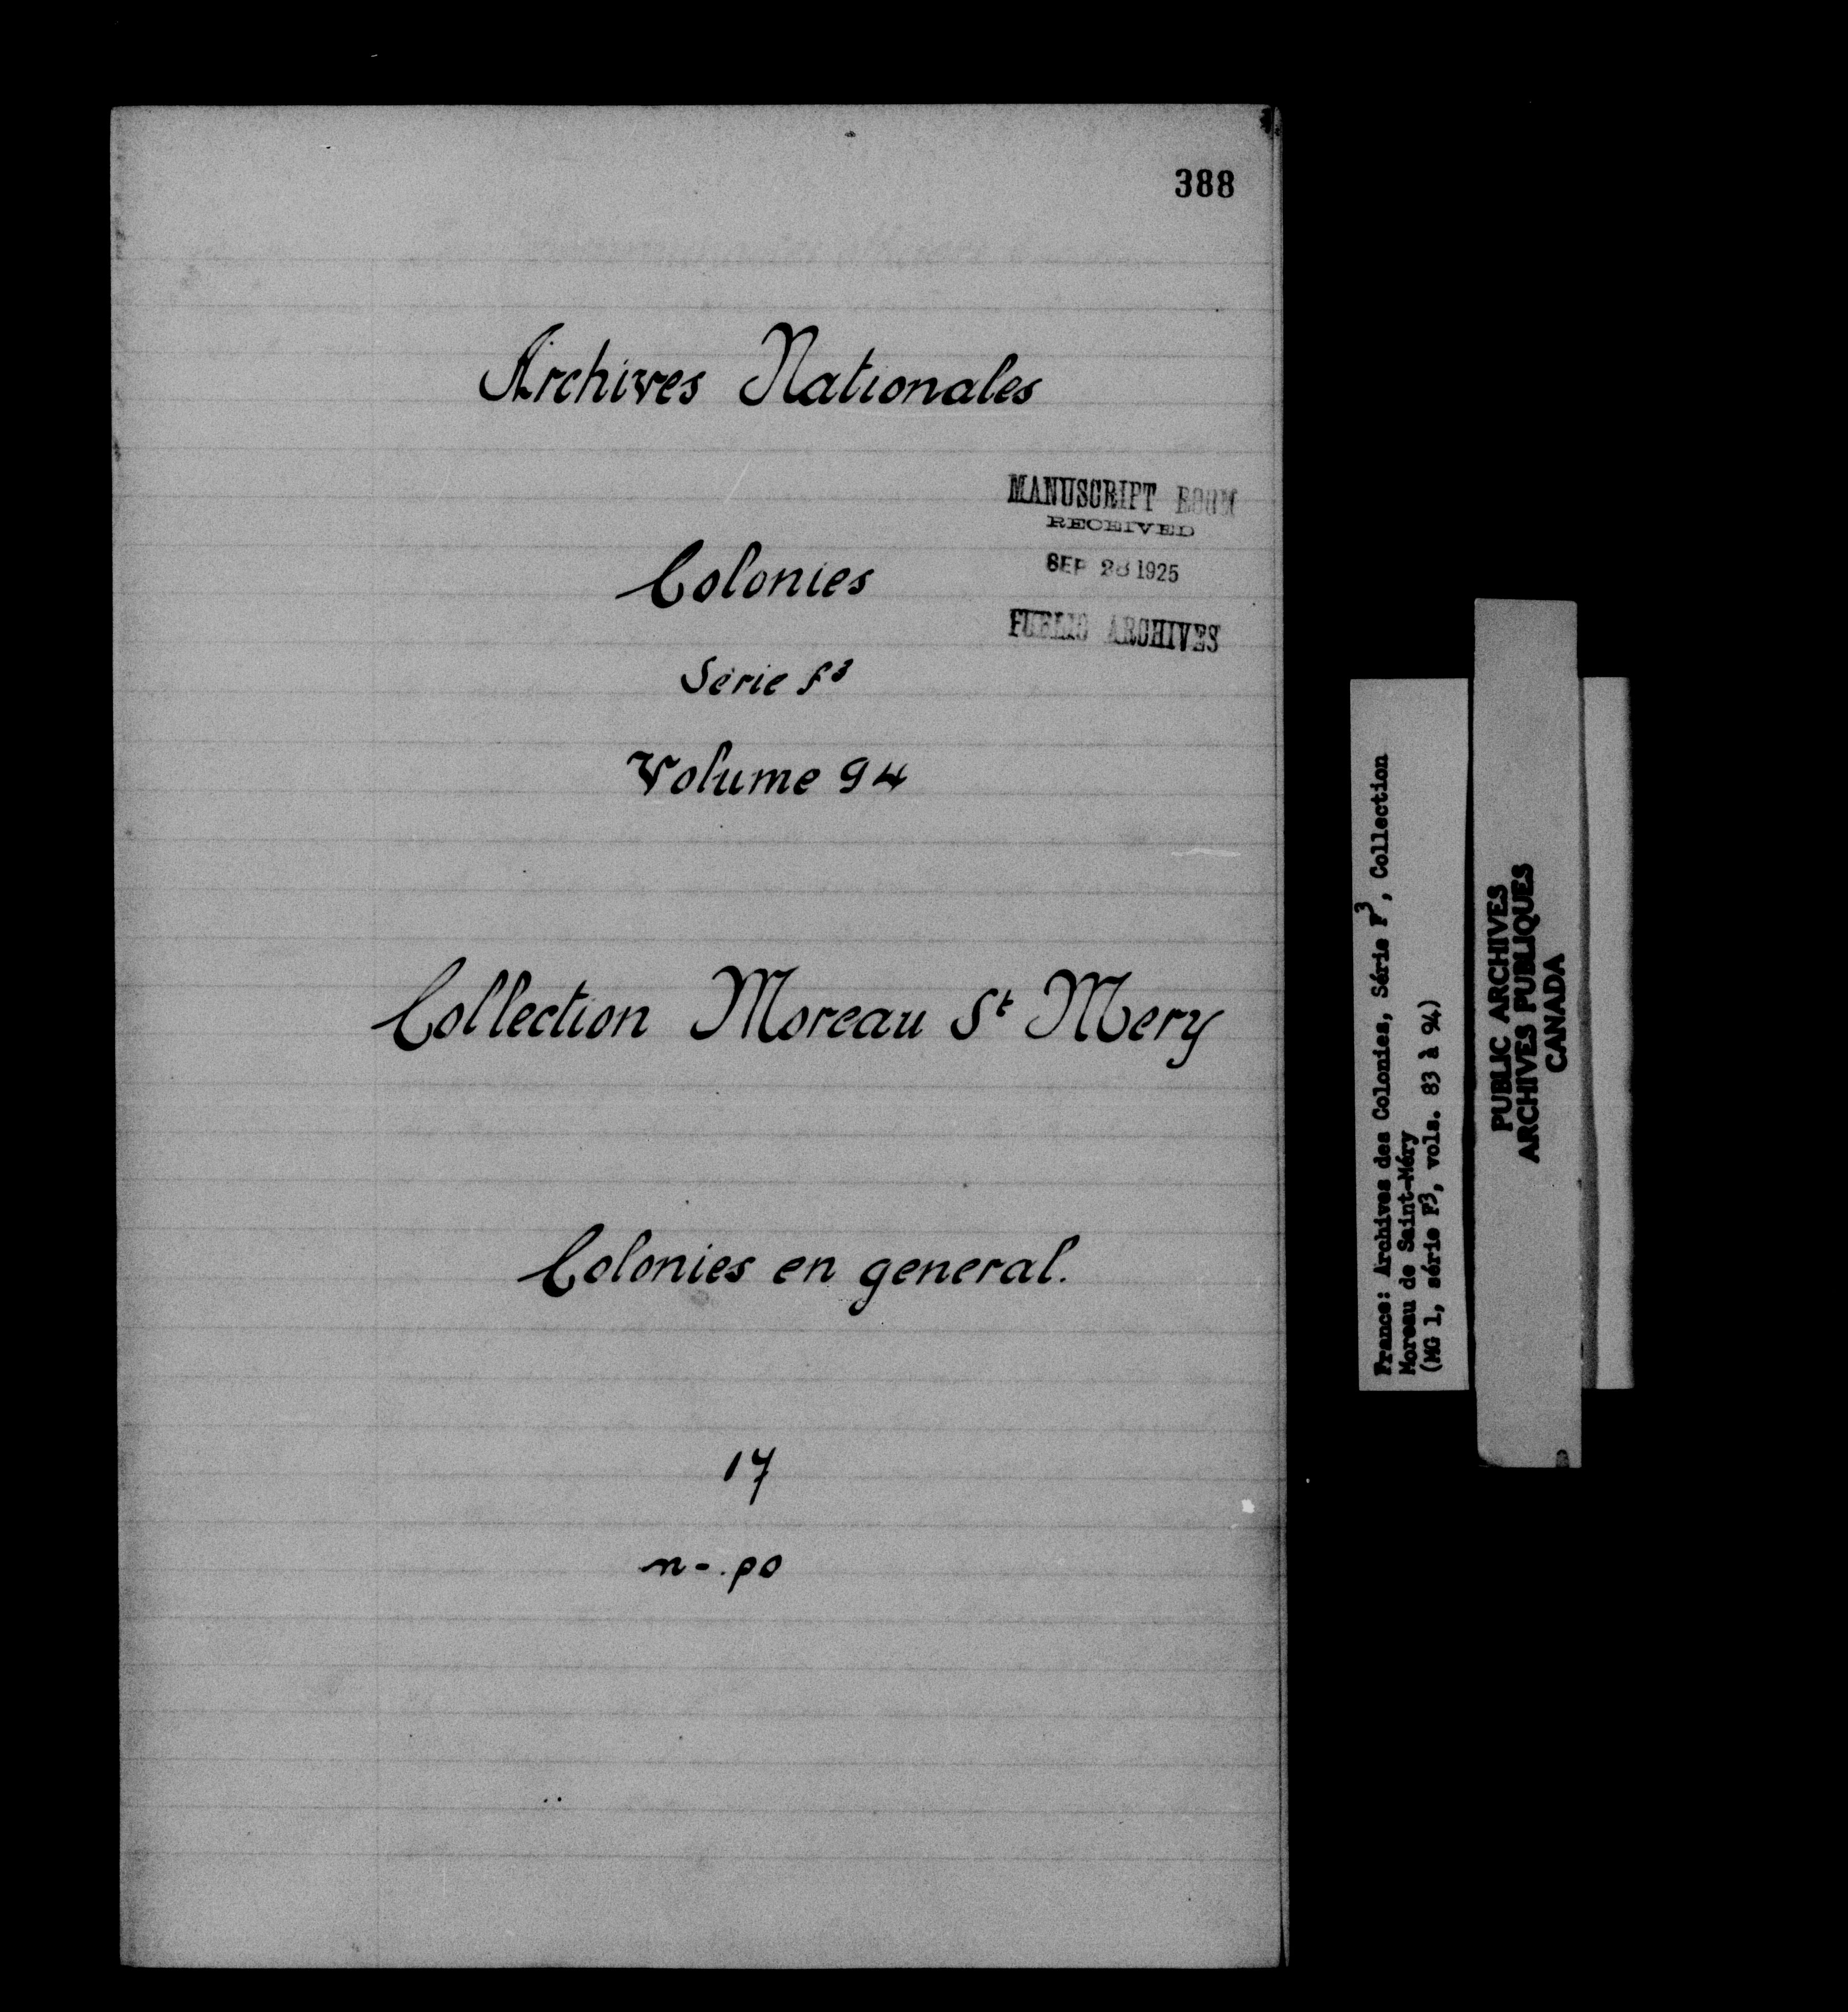 388
Archives Nationales
MANUSCRIPT ROOM
RECEIVED
SEP 28 1925
PUBLIC ARCHIVES
Colonies
Série F³
Volume 94
Collection Moreau St Mery
Colonies en general.
17
n-.po
France: Archives des Colonies, Série F³, Collection
Moreau de Saint-Méry
(MG 1, série F³, vols. 83 à 94)
PUBLIC ARCHIVES
ARCHIVES PUBLIQUES
CANADA